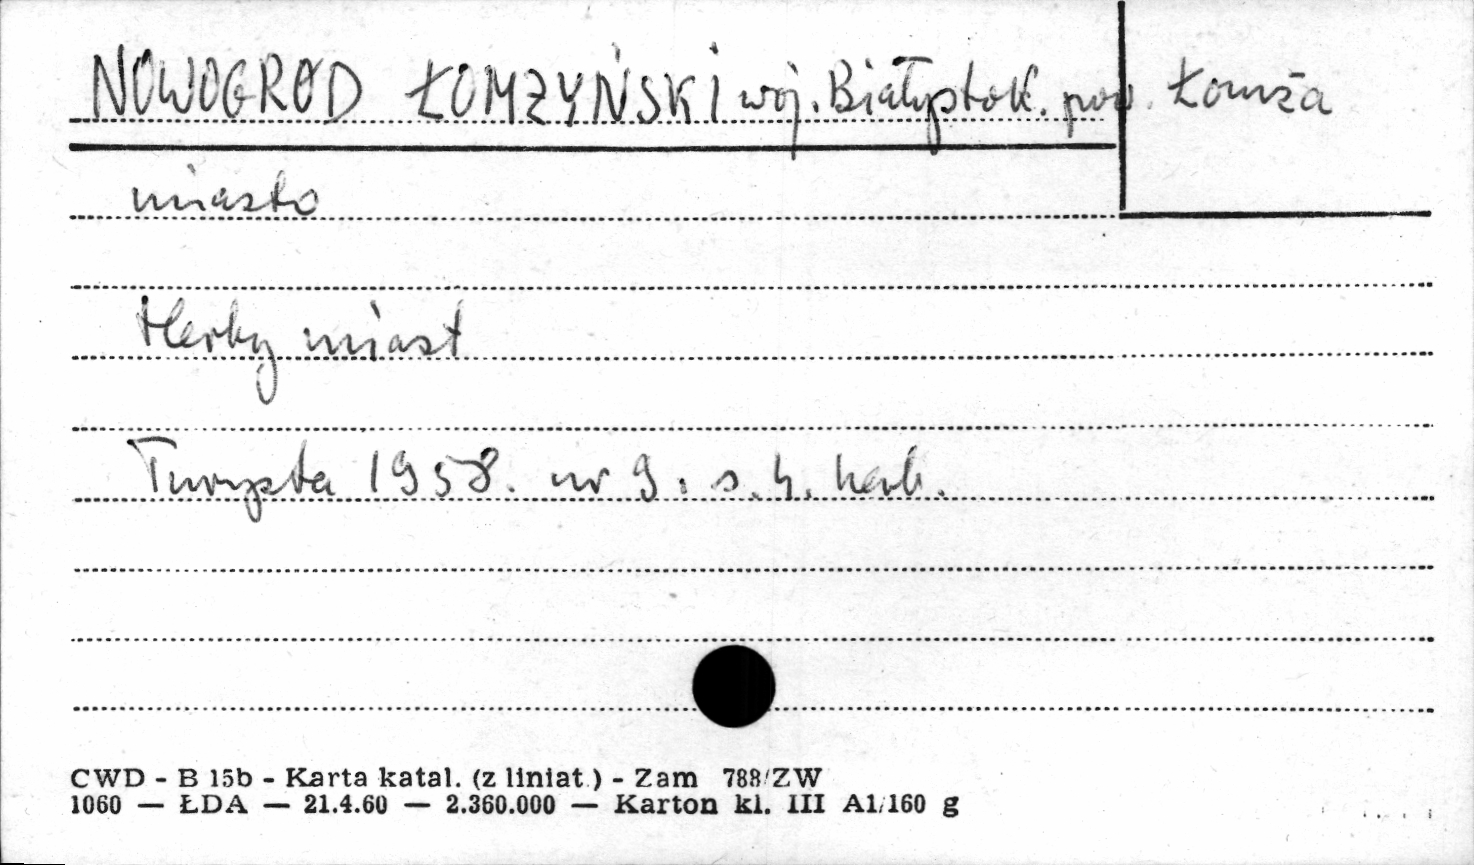 NOWOGRÓD ŁOMŻYŃSKI woj. Białystok. pow. Łomża
miasto
Herby miast
Turysta 1958. nr 9. s. 4. herb.
CWD - B 15b - Karta katal. (z liniat.) - Zam 788/ZW
1060 — ŁDA — 21.4.60 — 2.360.000 — Karton kl. III A1/160 g